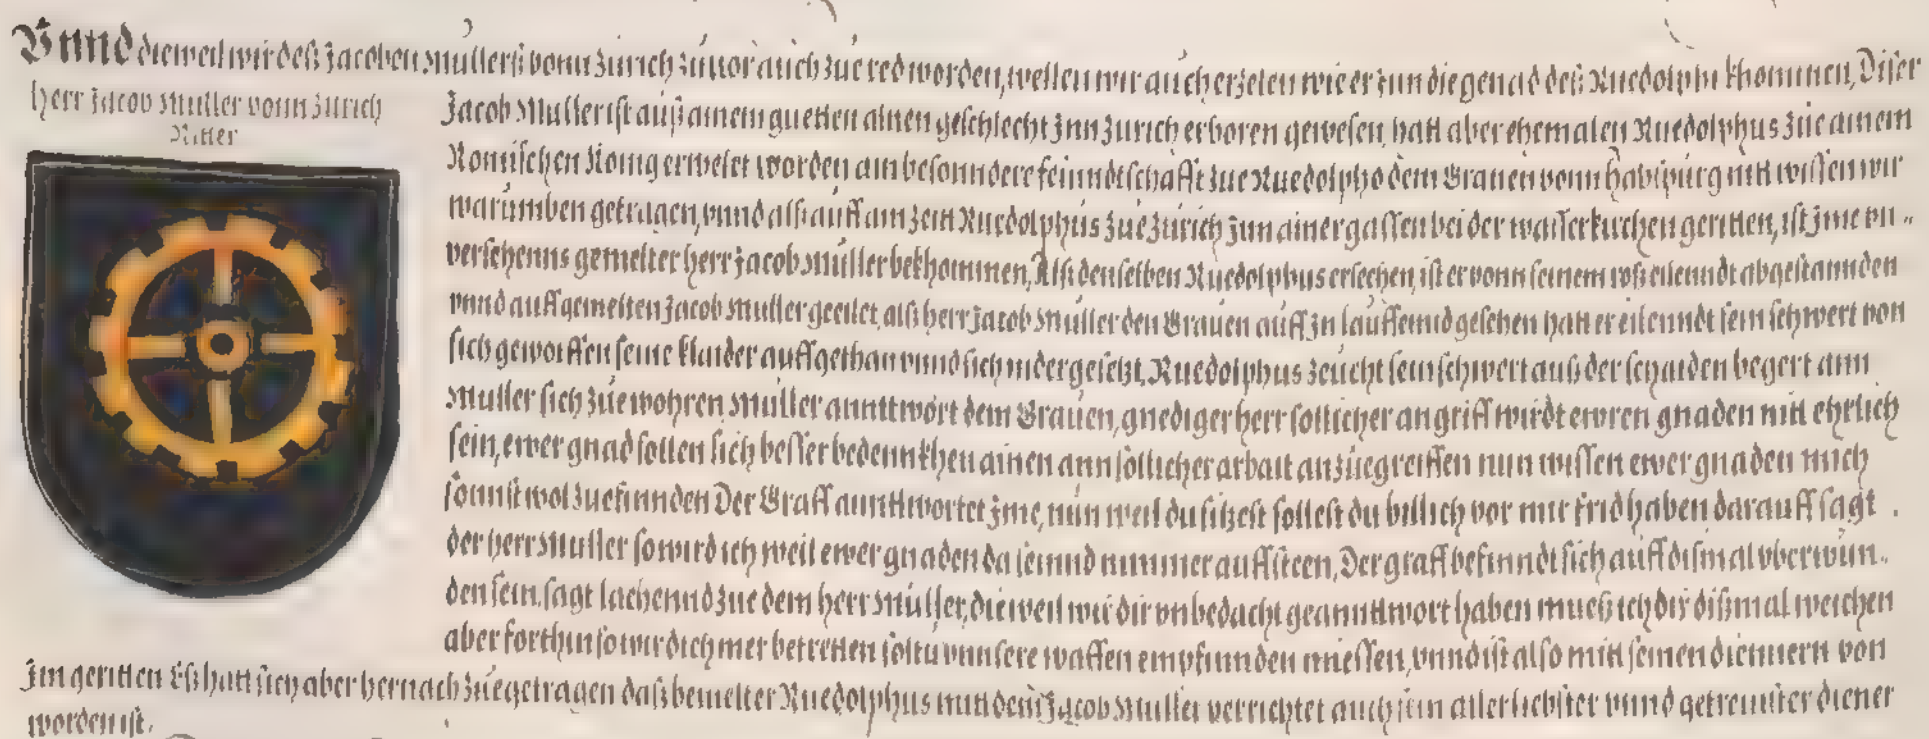 Vnnd dieweil wir deß Jacoben Müllerß vonn Zürich zuuor auch zue red worden, wellen wir auch erzelen wie er jnn die genad deß Ruedolphi khommen, Diser
herr Jacob Müller vonn Zürich
Ritter
Jacob Müller ist auß ainem guetten alten geschlecht Jnn Zurich erboren gewesen, hatt aber ehemalen Ruedolphus zue ainem
Romischen König erwelet worden ain besonndere feinndtschafft zue Ruedolpho dem Grauen vonn Habspurg nitt wissen wir
warumben getragen, vnnd alß auff ain zeit Ruedolphus zue Zürich jnn ainer gassen bei der wasserkirchen geritten, ist jme vn-
versehenns gemelter herr Jacob Müller bekhommen, Alß denselben Ruedolphus ersechen, ist er vonn seinem roß eilenndt abgestannden
vnnd auff gemelten Jacob Müller geeilet, alß herr Jacob Müller den Grauen auff jn lauffennd gesehen hatt er eilenndt sein schwert von
sich geworffen seine klaider auffgethan vnnd sich nidergesetzt, Ruedolphus zeucht sein schwert auß der schaiden begert ann
Müller sich zue wohren, Müller annttwort dem Grauen, gnediger herr sollicher angriff wirdt ewren gnaden nitt ehrlich
sein, ewer gnad sollen sich besser bedennkhen ainen ann sollicher arbait anzuegreiffen nun wissen ewer gnaden mich
sonnst wol zuefinnden Der Graff annttwortet jme, nun weil du sitzest sollest du billich vor mir frid haben darauff sagt
der herr Müller so wird ich weil ewer gnaden da seinnd nimmer auffsteen, Der graff befinndt sich auff dismal vberwun-
den sein, sagt lachennd zue dem herr Müller, dieweil wir dir vnbedacht geannttwort haben mueß ich dir dißmal weichen
aber forthin so wir dich mer betretten soltu vnnsere waffen empfinnden miessen, vnnd ist also mitt seinen dienern von
jm geritten Eß hatt sich aber hernach zuegetragen daß bemelter Ruedolphus mitt dem Jacob Müller verrichtet auch sein allerliebster vnnd getreuister diener
worden ist.